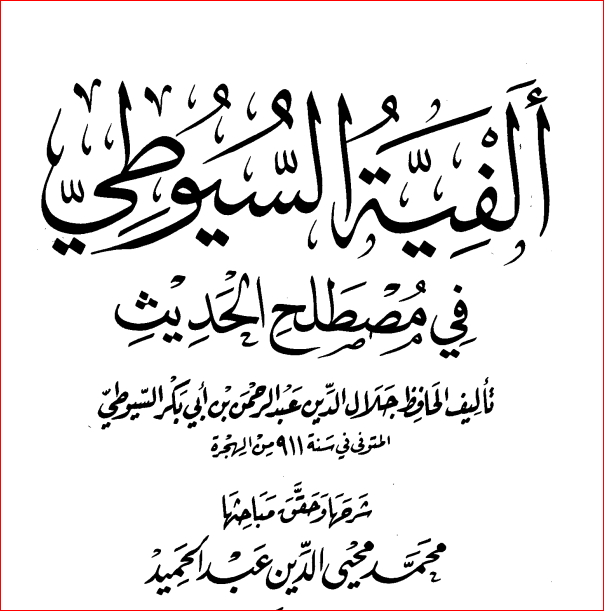 ألفية السيوطي
في مصطلح الحديث
تأليف الحافظ جلال الدين عبد الرحمن بن أبي بكر السيوطي
المتوفى في سنة ٩١١ من الهجرة
شرحها وحقق مباحثها
محمد محيي الدين عبد الحميد